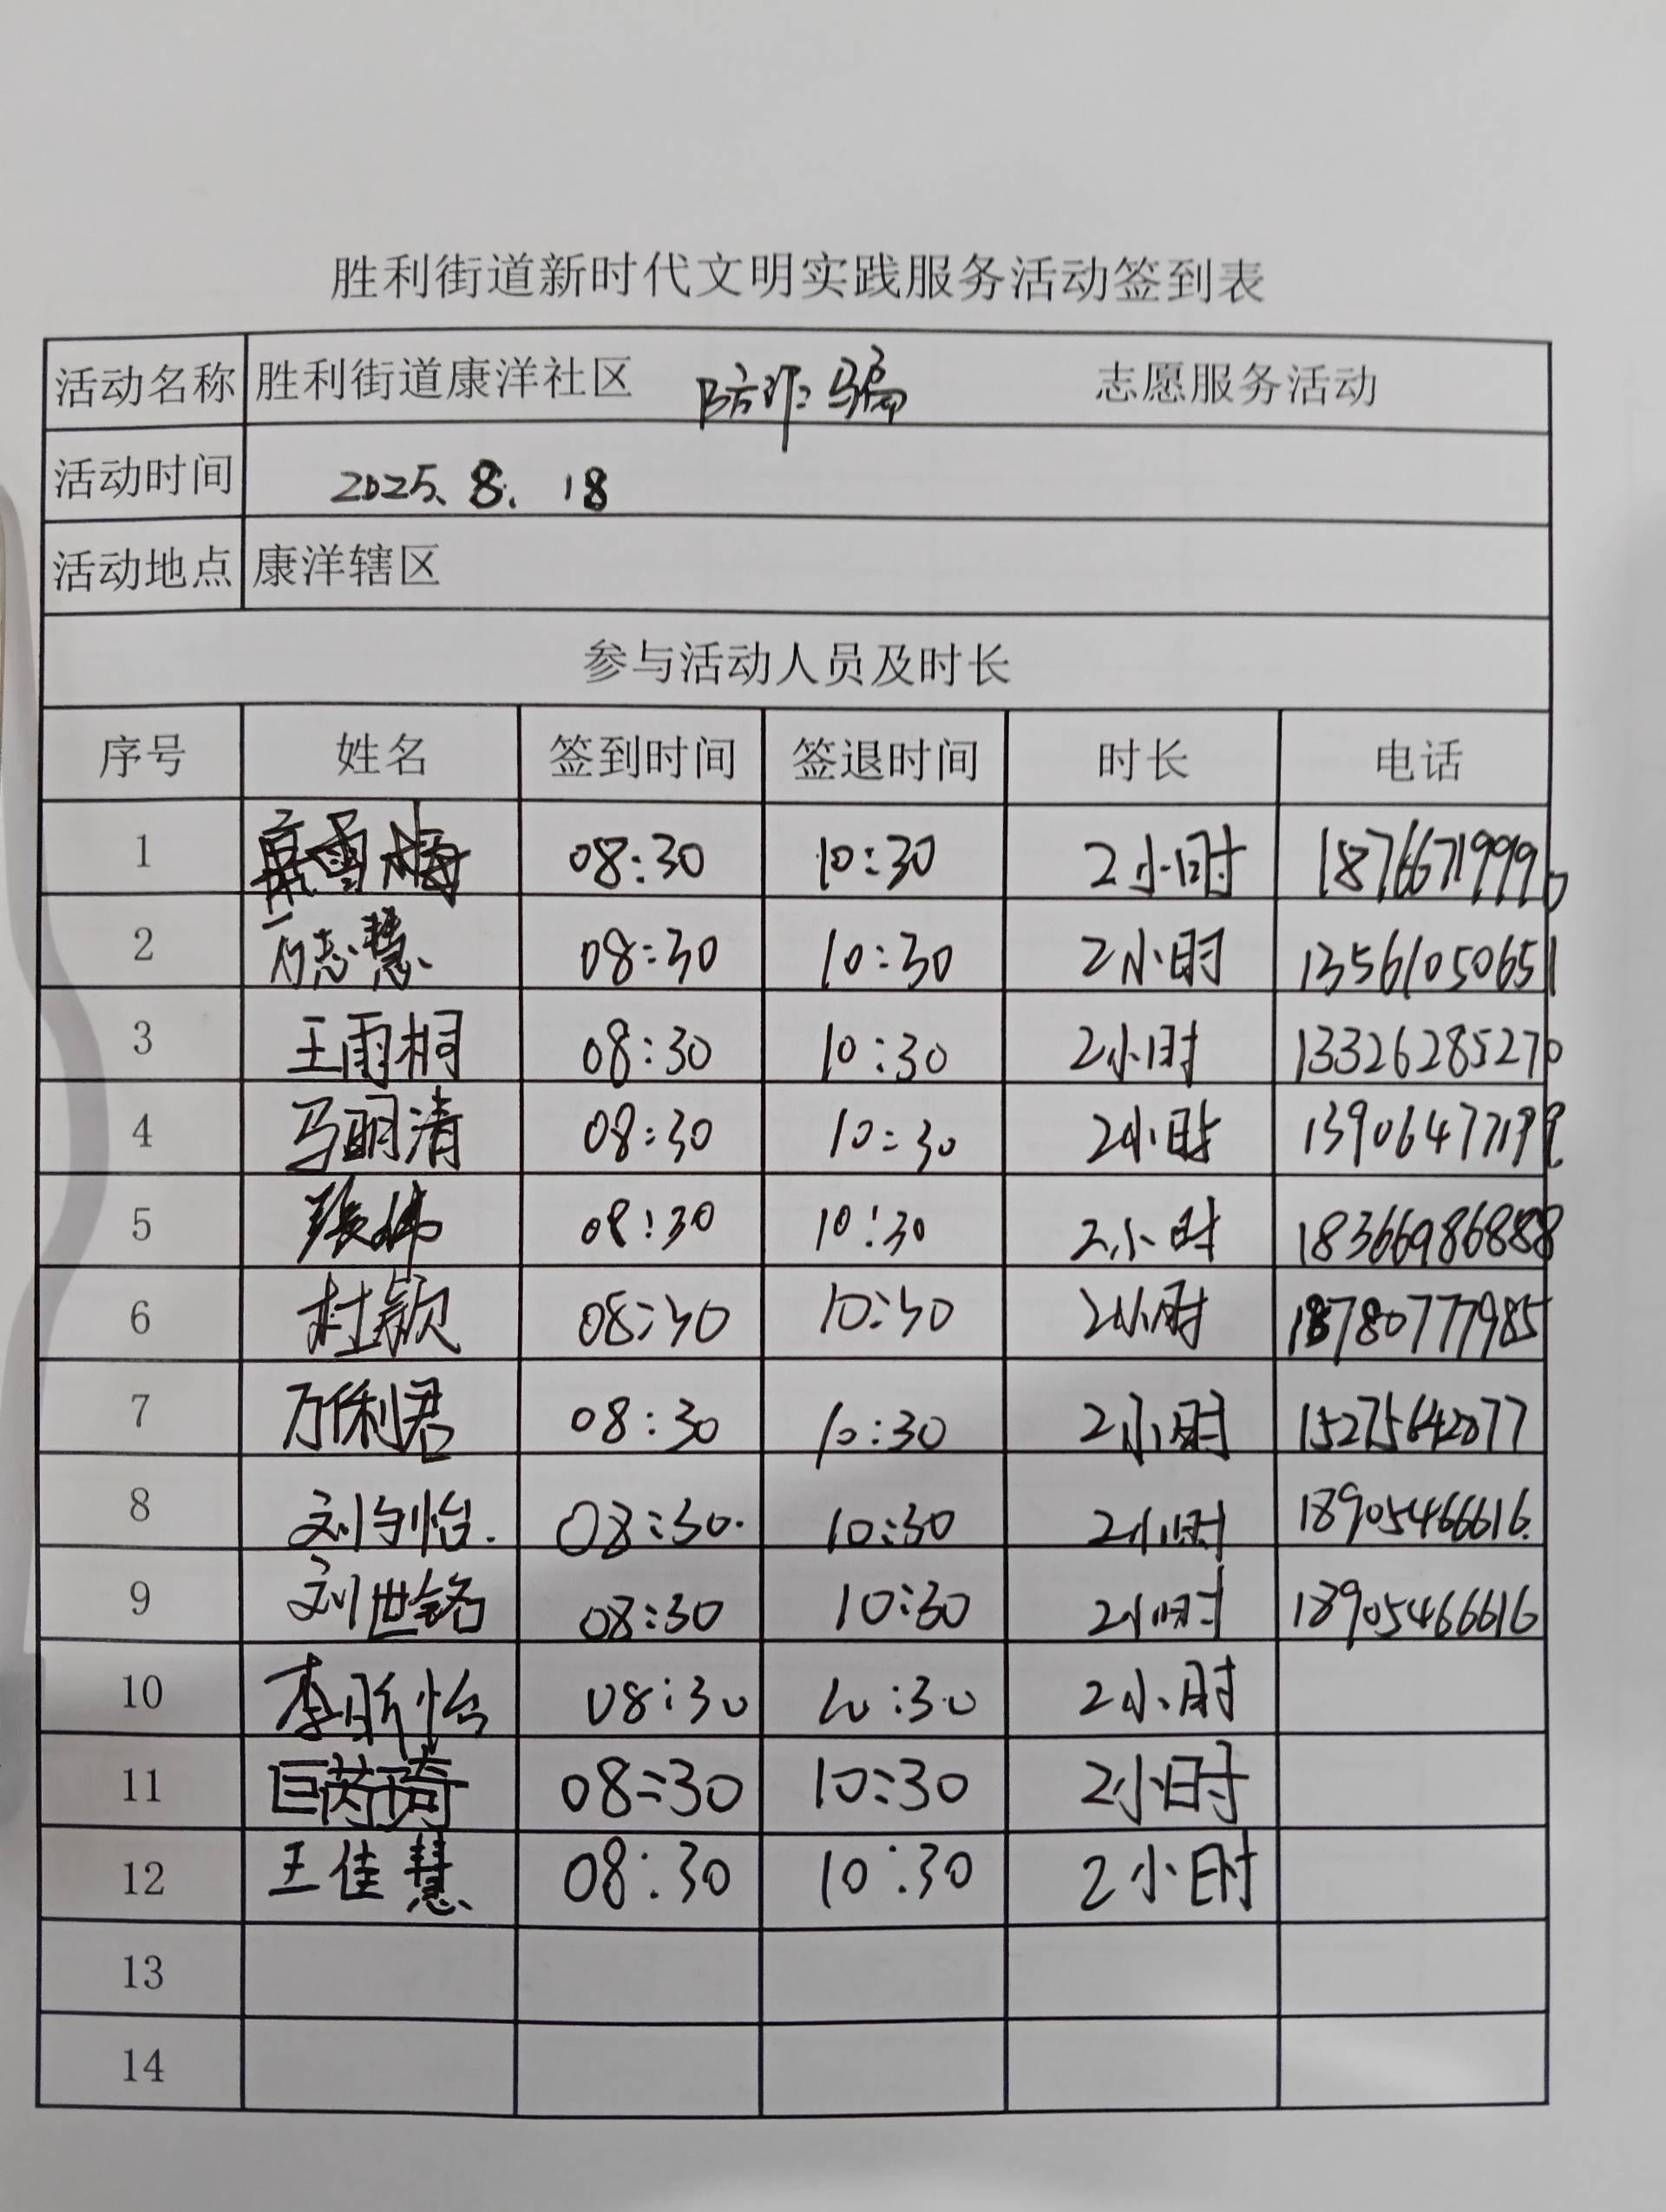 胜利街道新时代文明实践服务活动签到表
活动名称 胜利街道康洋社区 防诈骗 志愿服务活动
活动时间 2025.8.18
活动地点 康洋辖区
参与活动人员及时长
序号 姓名 签到时间 签退时间 时长 电话
1 雪梅 08:30 10:30 2小时 18766719990
2 志慧 08:30 10:30 2小时 13561050651
3 王雨桐 08:30 10:30 2小时 13326285270
4 马明清 08:30 10:30 2小时 13906477199
5 张伟 08:30 10:30 2小时 18366986888
6 杜颖 08:30 10:30 2小时 18780777985
7 万俐君 08:30 10:30 2小时 15275642077
8 刘与怡. 08:30. 10:30 2小时 18905466616.
9 刘世铭 08:30 10:30 2小时 18905466616
10 李昕怡 08:30 10:30 2小时
11 巨芮琦 08:30 10:30 2小时
12 王佳慧 08:30 10:30 2小时
13
14